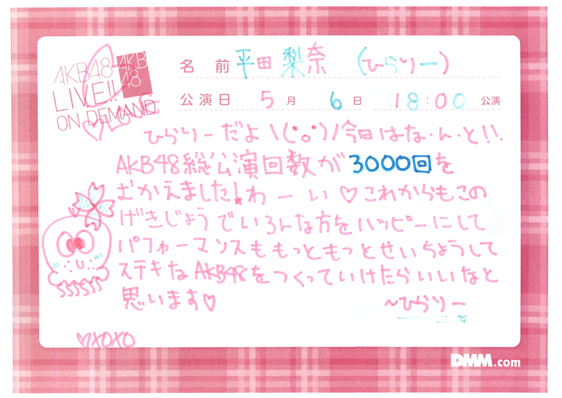 AKB48
LIVE!!
ON DEMAND
AKB
48
名 前 平田 梨奈 (ひらりー)
公演日 5 月 6 日 18:00 公演
ひらりーだよ\(°o°)/今日はな・ん・と!!
AKB48総公演回数が3000回を
むかえました!わーい♡これからもこの
げきじょうでいろんな方をハッピーにして
パフォーマンスももっともっとせいちょうして
ステキなAKB48をつくっていけたらいいなと
思います♡ ~ひらりー
♡XOXO
DMM.com